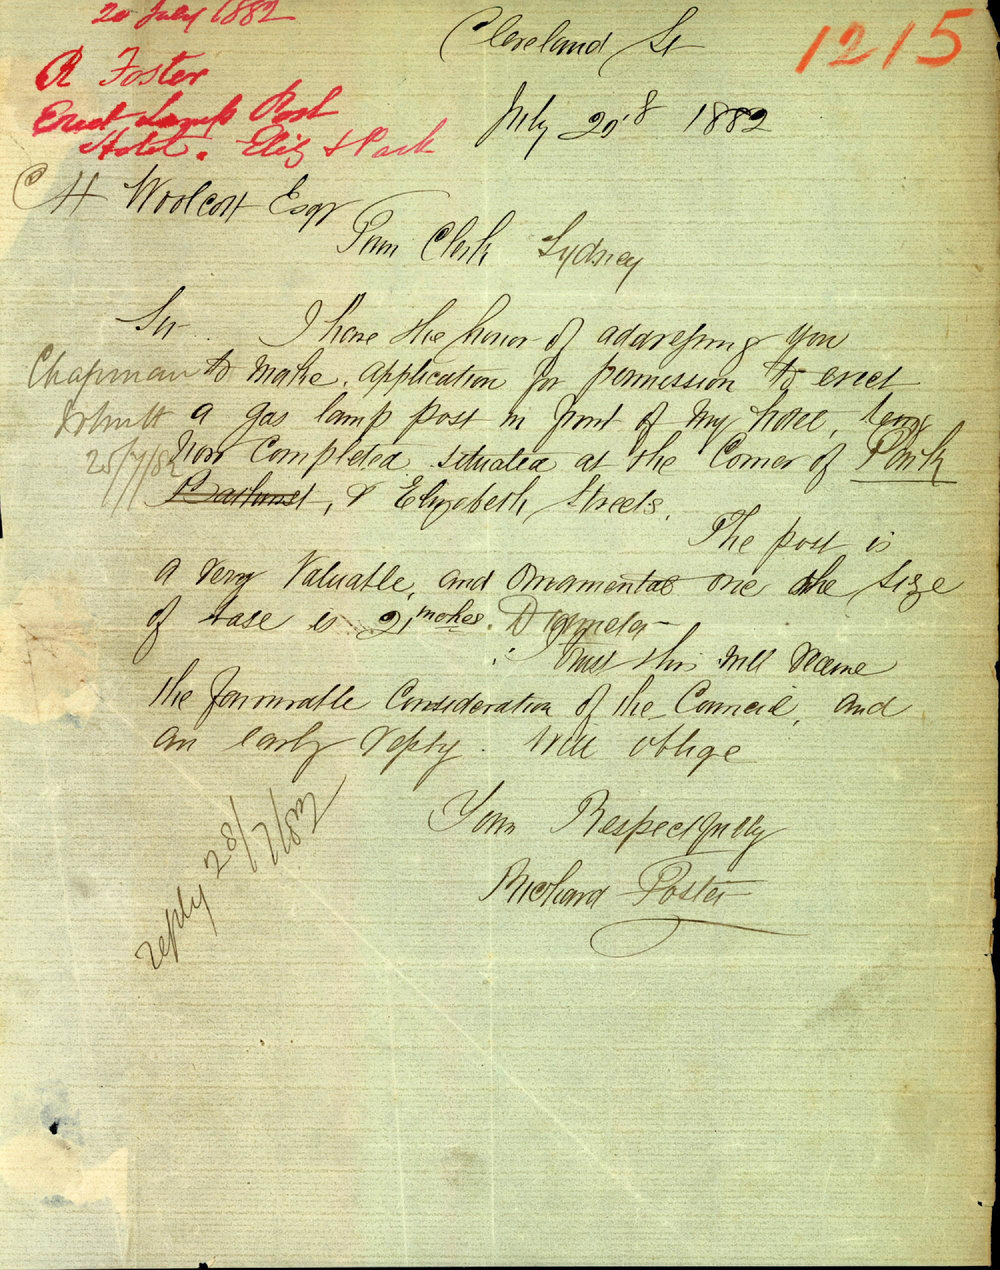 20 July 1882
R Foster
Erect Lamp Post
Hotel. Eliz & Park
1215
Cleveland St
July 20th 1882
C H Woolcott Esqr
Town Clerk Sydney
Sir. I have the honor of addressing you
to make application for permission to erect
a gas lamp post in front of my hotel, being
now completed situated at the Corner of Park
Bathurst, & Elizabeth Streets.
The post is
a very Valuable, and Ornamental one the size
of base is 21 inches. Diameter
I trust this will receive
the favourable Consideration of the Council, and
an early reply. will oblige
Yours Respectfully
Richard Foster
Chapman
25/7/82
reply 28/7/82